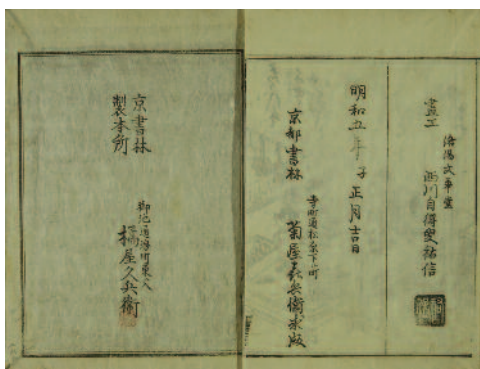 畫工
洛陽文華堂
西川自得叟祐信
明和五年子正月吉日
京都書林
寺町通松原下ル町
菊屋喜兵衛求版
京書林
製本所
橘屋久兵衛